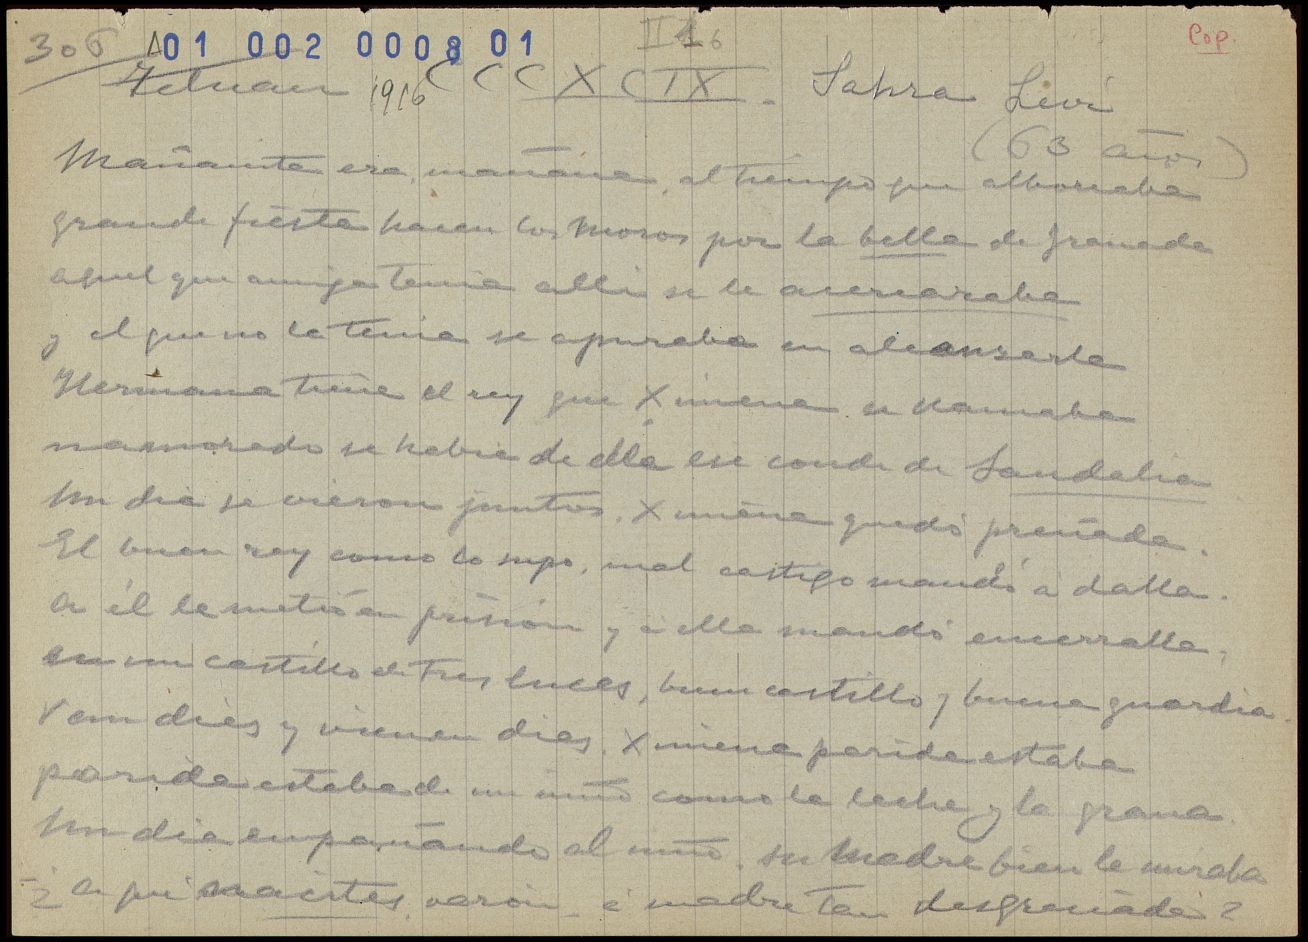 306 A01 002 0008 01 II 16 Pop.
Tetuan 1916 CCCXCIX. Sahra Levi
(63 años)
Mañanita era, mañana, al tiempo que alboreaba
grande fiesta hacen los moros por la bella de Granada
aquel que amiga tenia alli se le acercaraba
y el que no la tenia se apuraba en alcansarla
Hermana tiene el rey que Ximena se llamaba
namorado se habia de ella ese conde de Sandalia
Un dia se vieron juntos, Ximena quedó preñada.
El buen rey como lo supo, mal castigo mandó a dalla.
a él le metió en prisión y a ella mandó encerralla,
en un castillo de tres luces, buen castillo y buena guardia.
Van dias y vienen dias, Ximena parida estaba
parida estaba de un niño como la leche y la grana.
Un dia empañando al niño, su madre bien le miraba
- ¿a qué naciites, varón, e madre tan desgreñada?